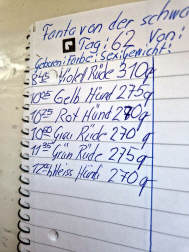 Fanta von der schwa
Tag: 62 von:
Geboren: Farbe: Sex: Gewicht:
8⁴⁵ Violet Rüde 310g
10⁰⁵ Gelb Hünd 275g
10²⁵ Rot Hünd 270g
10⁵⁰ Grau Rüde 270g
11³⁵ Grün Rüde 275g
12⁵⁰ Weiss Hünd 270g